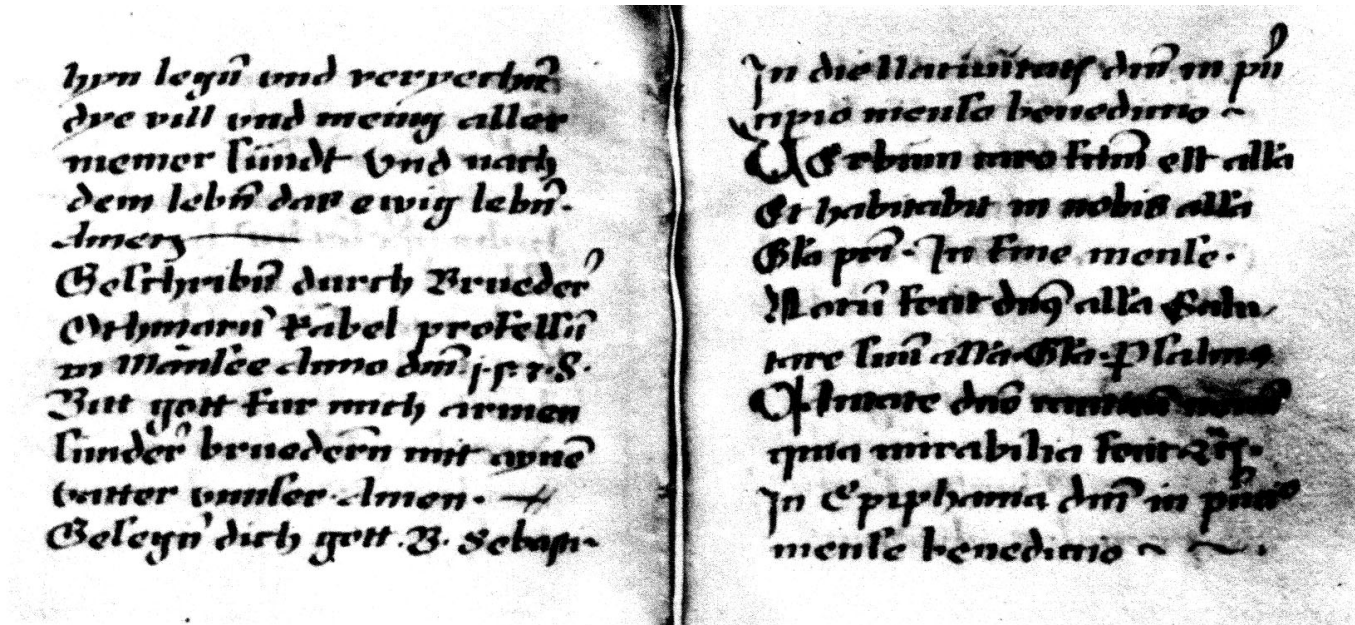 hyn legn̄ vnd verzeichn̄
dye vill vnd meinig aller
meiner sündt Vnd nach
dem lebn̄ das ewig lebn̄.
Amen
Geschribn̄ durch Brueder
Othmarn̄ Kabel professū
in Mānsee Anno dm̄ 1·5·2·8·
Bitt gott fur mich armen
sünder bruedern̄ mit aynē
vatter vnnser. Amen.
Gesegn̄ dich gott .B. Sebasti
In die Natiuitatis dnī in prī
cipio mense benedictio
VErbum caro fctm̄ est all'a
Et habitabit in nobis all'a
Gl'a pri. In fine mense.
Notū fecit dn̄s all'a Salu
tare suū all'a Gl'a. Psalmꝯ
Cantate dnō canticū nouū
quia mirabilia fecit
In Epiphania dnī in prīcio
mense benedictio